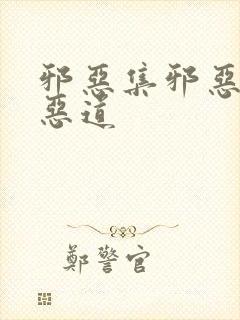 邪惡集邪惡
惡道
鄭警官